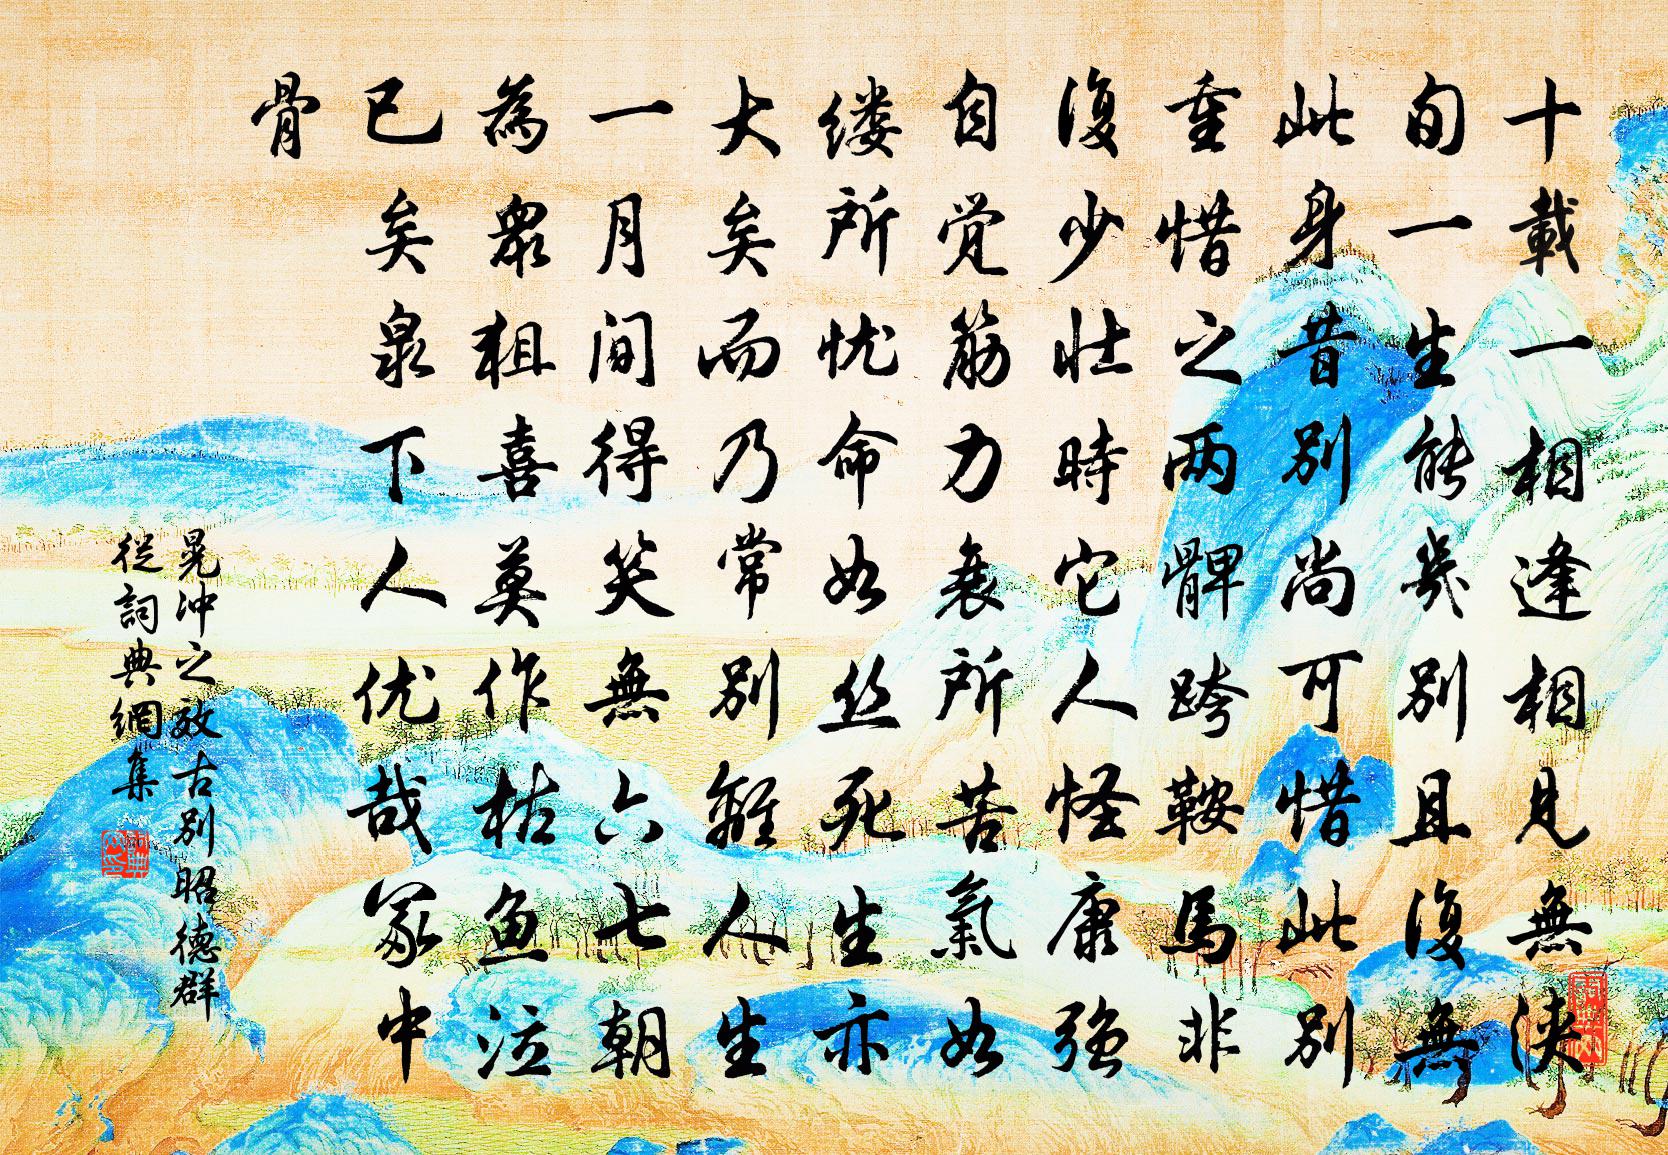 十載一相逢相見無浹
旬一生能幾別且復無
此身昔別尚可惜此別
重惜之两髀跨鞍馬非
復少壮時它人怪康強
自觉筋力衰所苦氣如
缕所忧命如丝死生亦
大矣而乃常别離人生
一月间得笑無六七朝
為眾狙喜莫作枯魚泣
已矣泉下人优哉冢中
骨
晁冲之效古别昭德群
從詞典網集